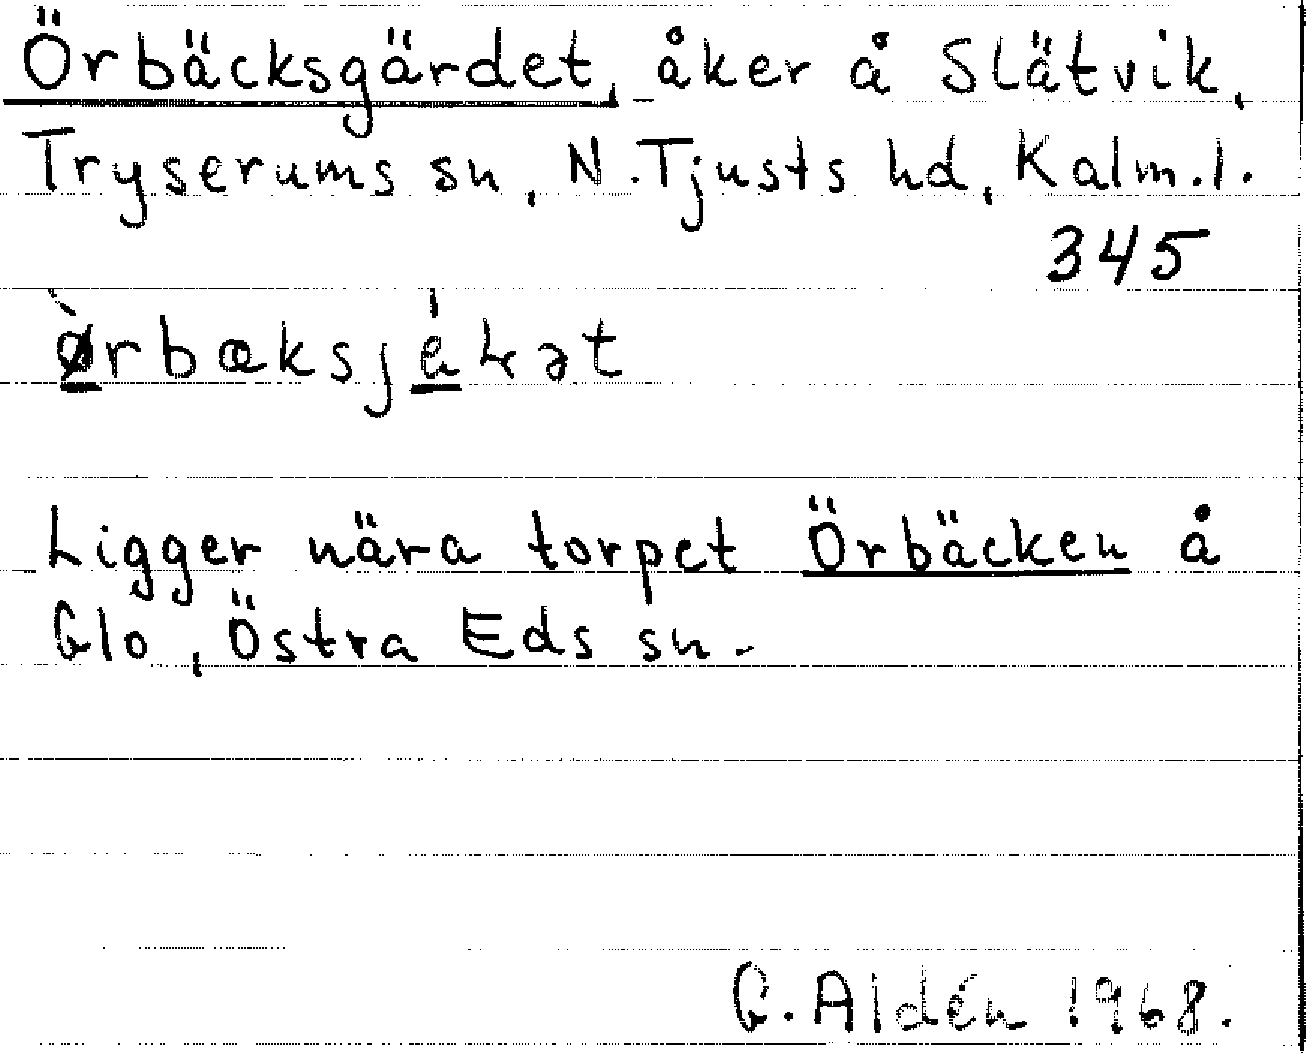 Örbäcksgärdet, åker å Slätvik,
Tryserums sn, N.Tjusts hd, Kalm.l.
345
Ligger nära torpet Örbäcken å
Glo, Östra Eds sn.
G. Aldén 1968.